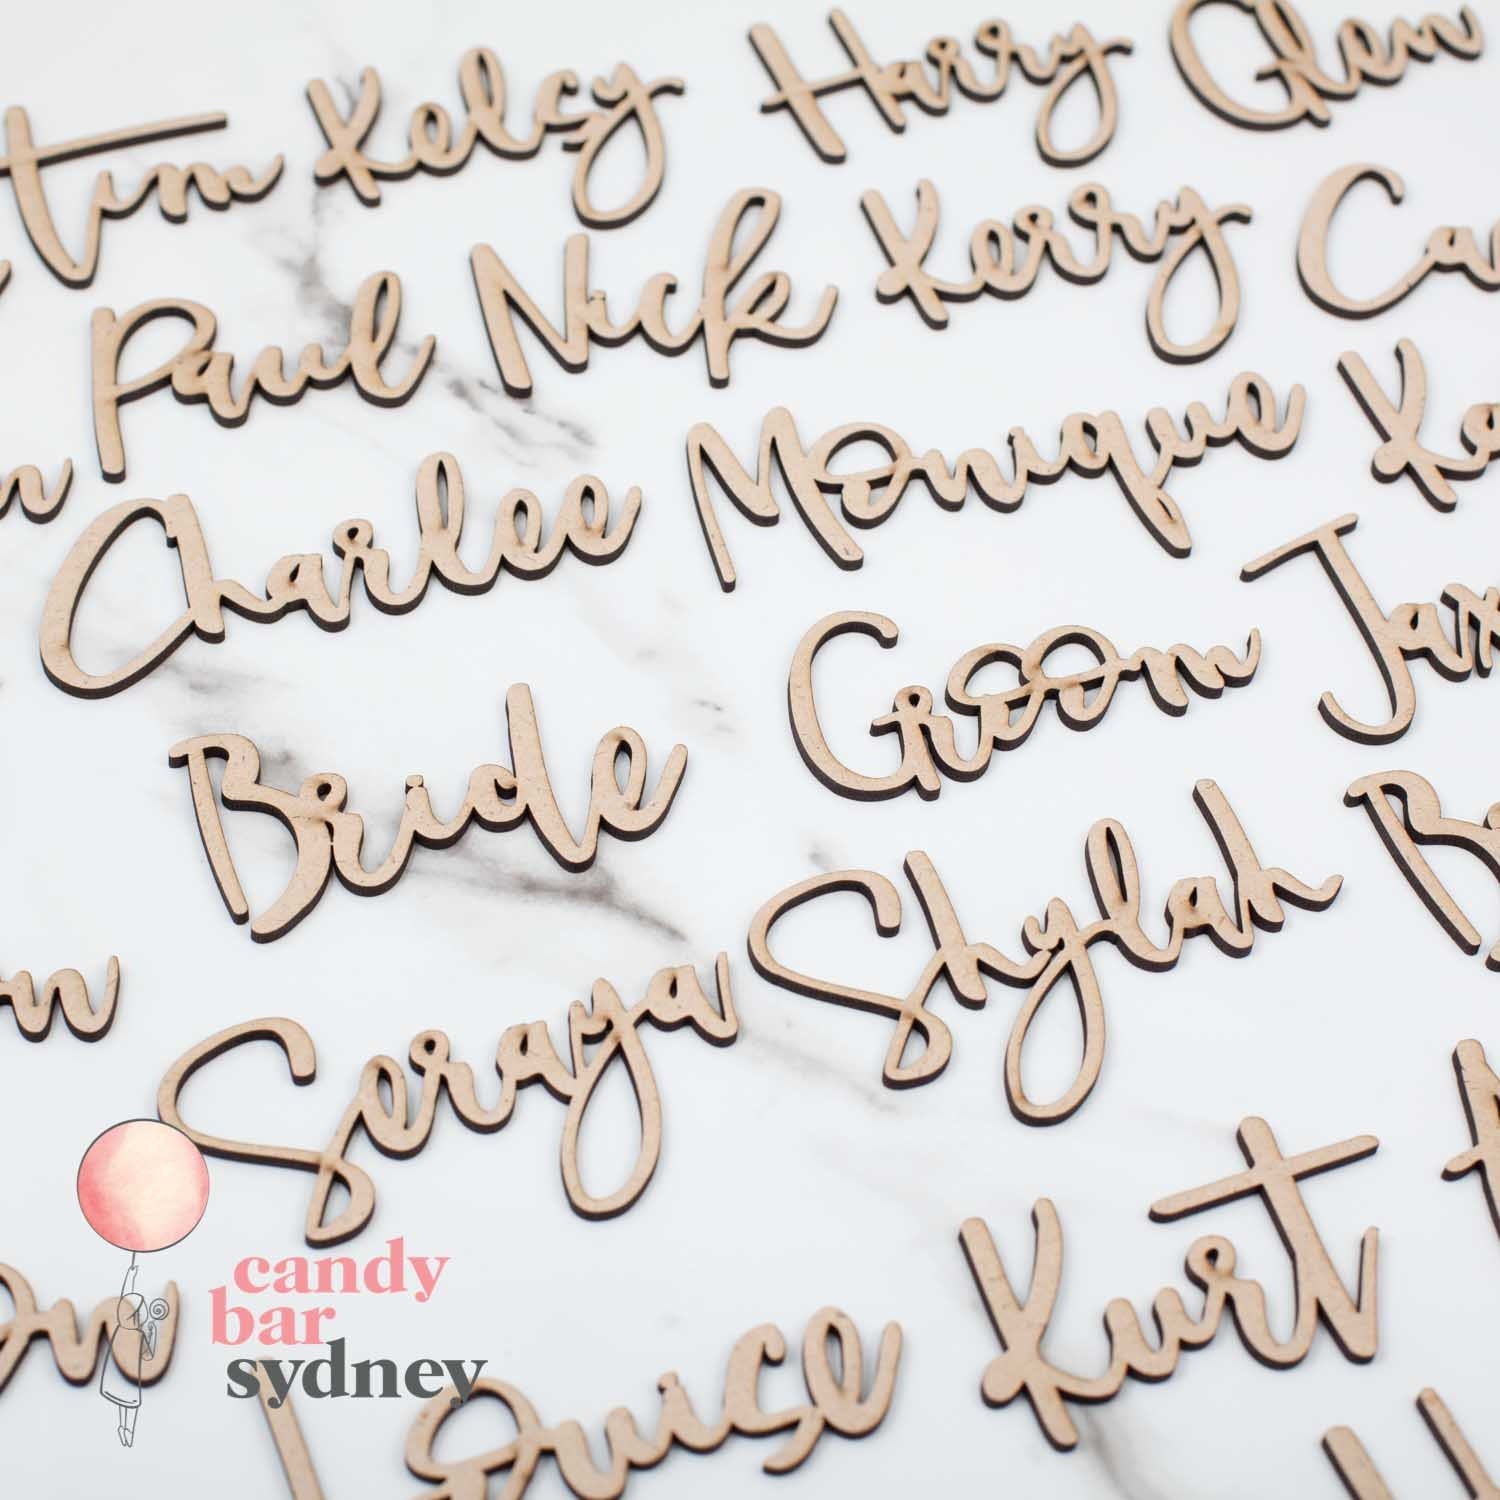 Tim Kelcy Harry Glen
Paul Nick Kerry
Charlee Monique
Bride Groom
Seraya Shylah
Louise Kurt
candy
bar
sydney